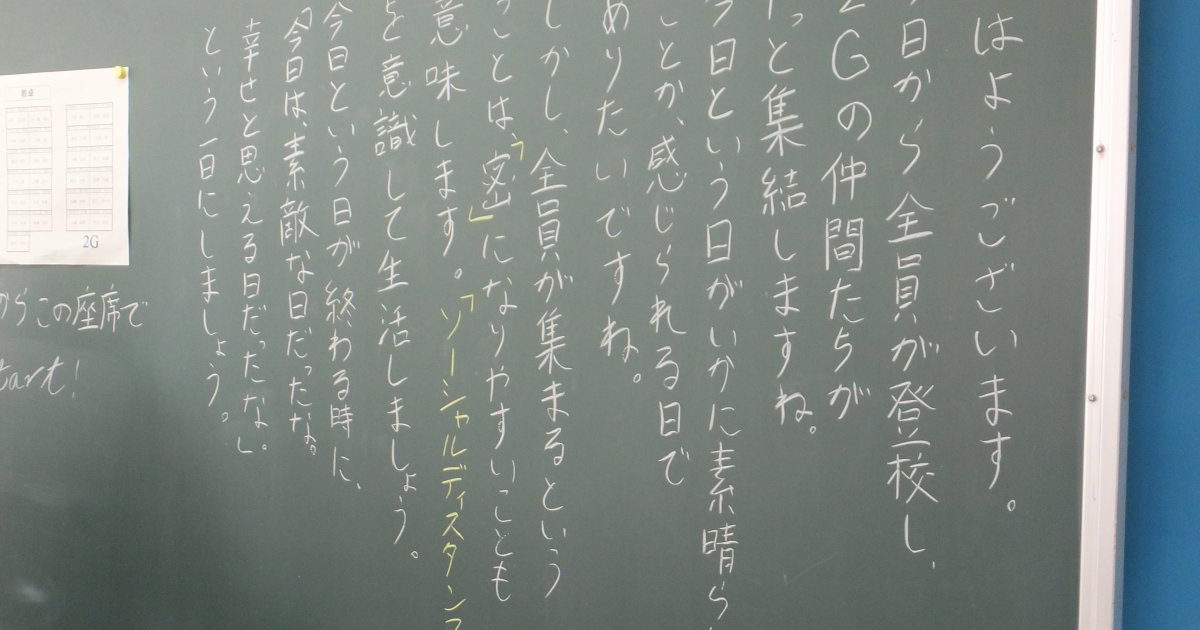 はようございます。
日から全員が登校し、
2Gの仲間たちが
っと集結しますね。
今日という日がいかに素晴ら
ことか、感じられる日で
ありたいですね。
しかし、全員が集まるという
ことは、「密」になりやすいことも
意味します。「ソーシャルディスタンス
を意識して生活しましょう。
今日という日が終わる時に、
「今日は、素敵な日だったな。
幸せと思える日だったな。」
という一日にしましょう。
教卓
2G
からこの座席で
tart!